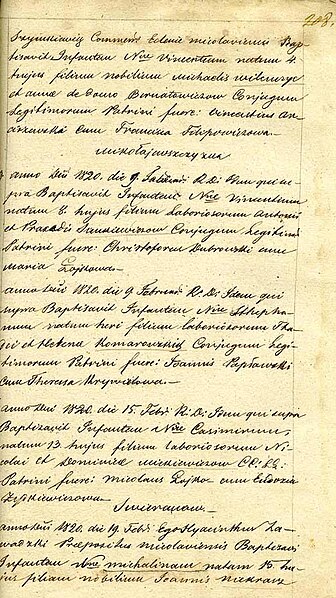 208.
Commen: Ecclesiae Micolaviensis Bap-
tisavit Infantem Nne Vincentium natum 4.
hujus filium nobilium Michaelis
et Annae de Domo Bernatowiczow Conjugum
Legitimorum Patrini fuere: Vincentius
cum Francisca Filipowiczowa.
Mikołajewszczyzna
anno Dni 1820. die 9. Februarii R: D: Idem qui su-
pra Baptisavit Infantem Nne Vincentium
natum 6. hujus filium Laboriosorum Antonii
et Conjugum Legitim:
Patrini fuere: Christophorus Dubrowski cum
Maria Zoykowa.
anno Dni 1820. die 9 Februarii R: D: Idem qui
supra Baptisavit Infantem Nne Stepha-
num natum heri filium laboriosorum Tha-
et Helena Komarewskich Conjugum Legi-
timorum Patrini fuere: Joannis
cum Theresa
anno Dni 1820. die 15. Febr: R: D: Idem qui supra
Baptisavit Infantem Nne Casimirum,
natum 13. hujus filium laboriosorum Ni-
colai et Dominicae Mickiewiczow CC: LL:
Patrini fuere: Micolaus Zoyko cum
anno Dni 1820. die 19. Febr: Ego Hyacinthus Za-
wadzki Praepositus Micolaviensis Baptisavi
Infantem Nne Michalinam natam 15. hu-
jus filiam nobilium Joannis